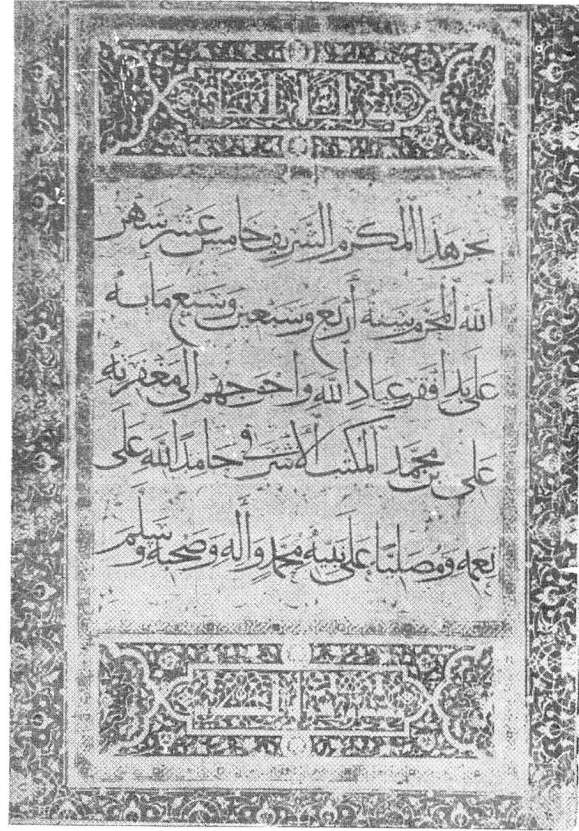 نجز هذا المكرم الشريف خامس عشر شهر
الله المحرم سنة أربع وسبعين وسبع مايه
على يد افقر عباد الله واحوجهم الى مغفرته
على بن محمد المكتب الأشرفى حامدا لله على
نعمه ومصليا على نبيه محمد وأله وصحبه وسلم